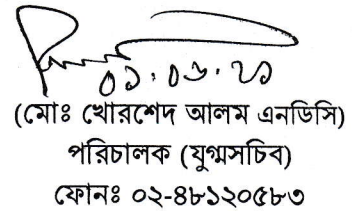 ০১.০৬.২১
(মোঃ খোরশেদ আলম এনডিসি)
পরিচালক (যুগ্মসচিব)
ফোনঃ ০২-৪৮১২০৫৮৩